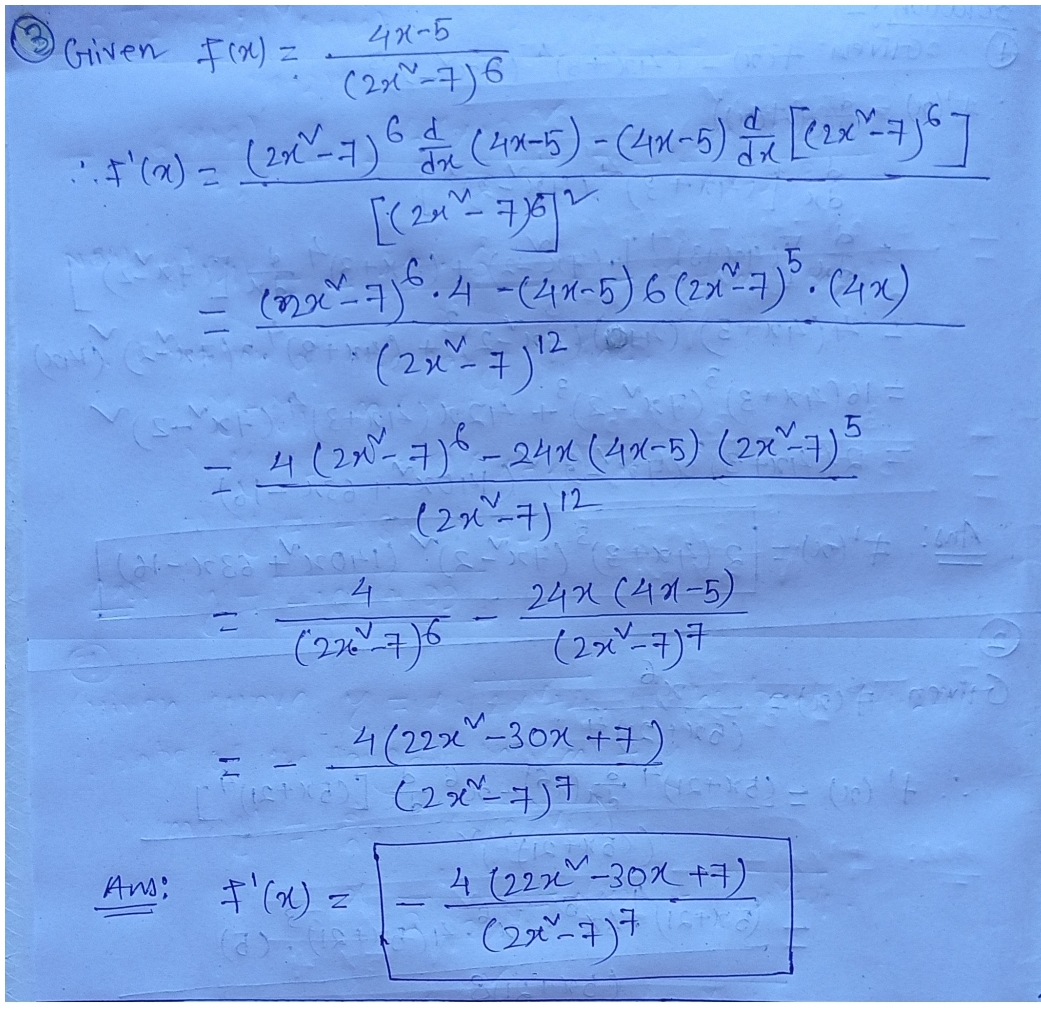 ③ Given f(x) = (4x-5)/(2x²-7)⁶
∴ f'(x) = ((2x²-7)⁶ d/dx (4x-5) - (4x-5) d/dx [(2x²-7)⁶])/[(2x²-7)⁶]²
= ((2x²-7)⁶·4 - (4x-5) 6 (2x²-7)⁵·(4x))/(2x²-7)¹²
= (4(2x²-7)⁶ - 24x(4x-5) (2x²-7)⁵)/(2x²-7)¹²
= 4/(2x²-7)⁶ - 24x(4x-5)/(2x²-7)⁷
= - 4(22x²-30x+7)/(2x²-7)⁷
Ans: f'(x) = - 4(22x²-30x+7)/(2x²-7)⁷